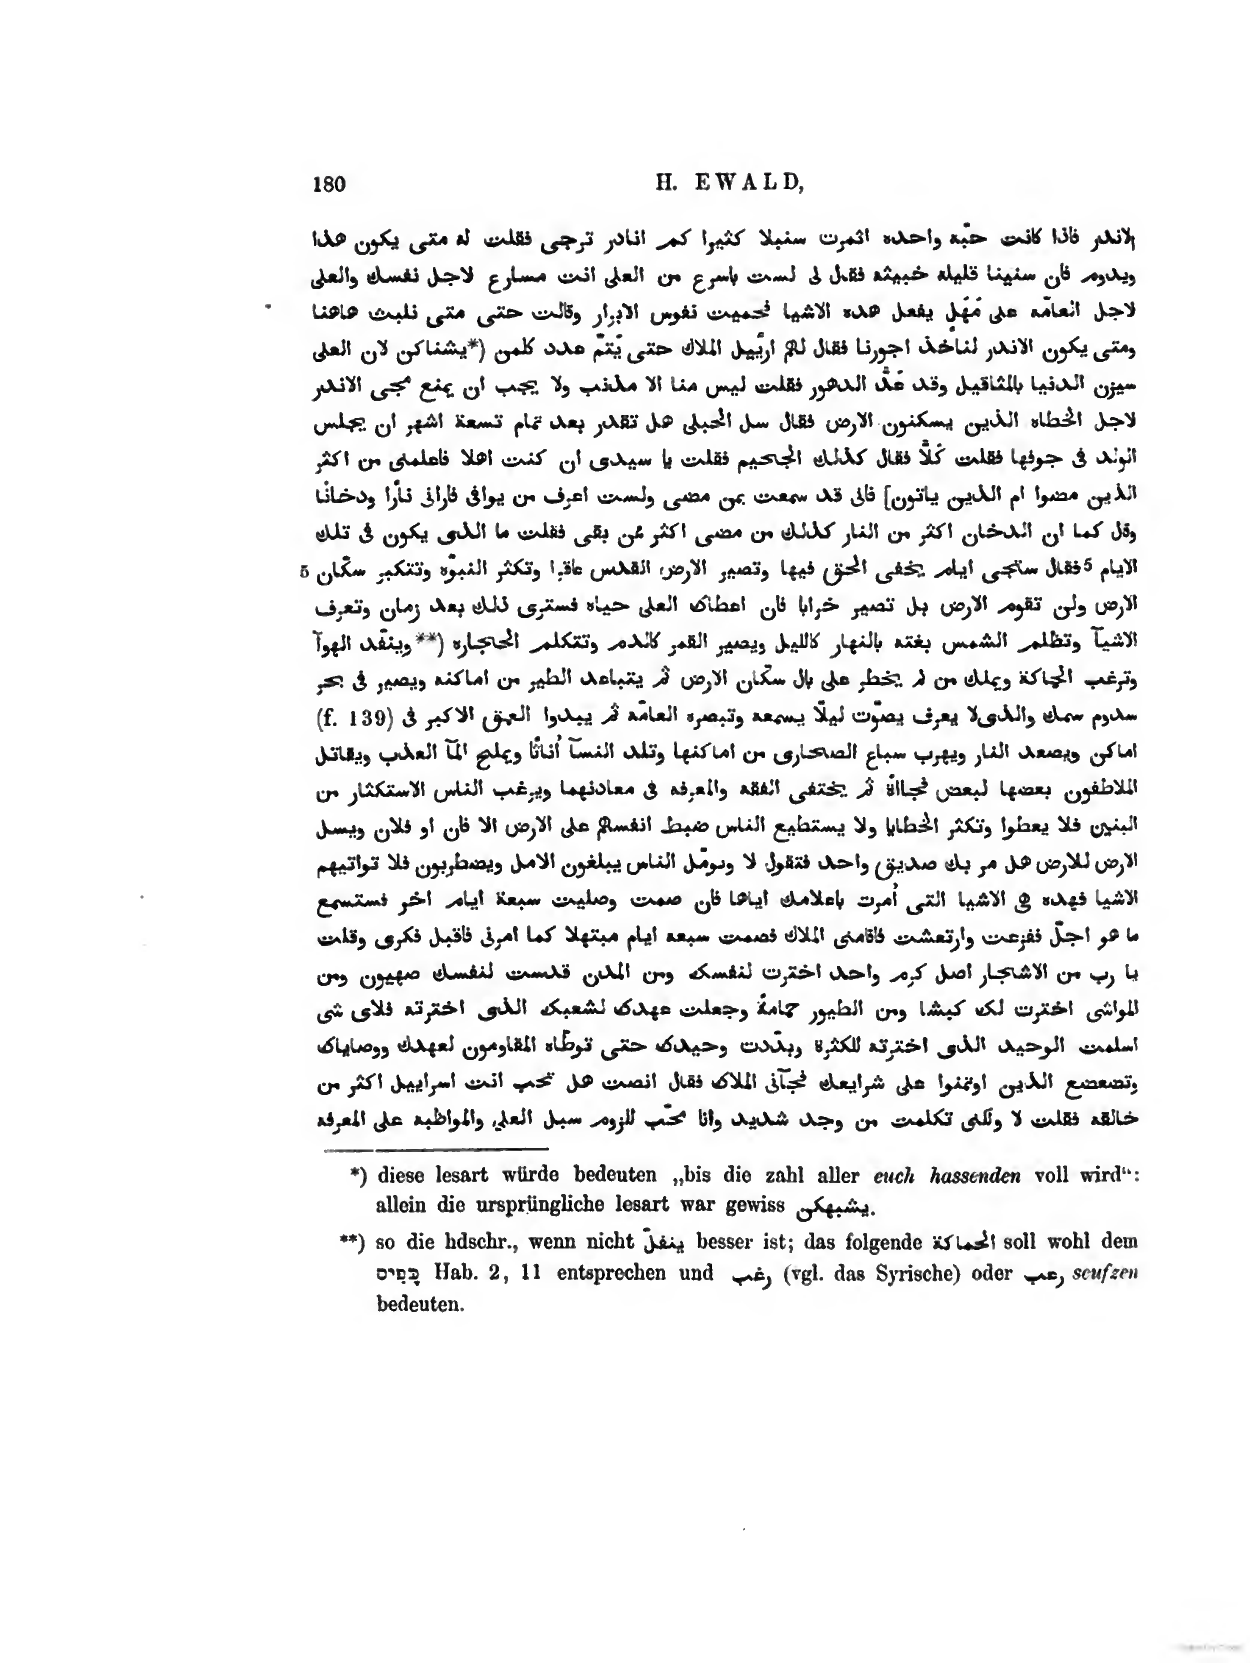 180 H. EWALD,
الاندر فاذا كانت حبّه واحده اثمرت سنبلا كثيرا كم انادر ترجى فقلت له متى يكون هذا
ويدوم فان سنينا قليله خبيثه فقال لى لست باسرع من العلى انت مسارع لاجل نفسك والعلى
لاجل العامّه على مُهْلٍ يفعل هذه الاشيا تحميت نفوس الابرار وقالت حتى متى نلبث هاهنا
ومتى يكون الاندر لناخذ اجورنا فقال لهم اربّيل الملاك حتى يُتمّ عدد كلمن (*يشناكن لان العلى
سيزن الدنيا بالمثاقيل وقد عَدَّ الدهور فقلت ليس منا الا مذنب ولا يجب ان يمنع مجى الاندر
لاجل الخطاه الذين يسكنون الارض فقال سل الحبلى هل تقدر بعد تمام تسعة اشهر ان يجلس
الولد فى جوفها فقلت كَلَّا فقال كذلك الجحيم فقلت يا سيدى ان كنت اهلا فاعلمنى من اكثر
الذين مضوا ام الذين ياتون] فانى قد سمعت بمن مضى ولست اعرف من يوافى فارانى نارًا ودخانًا
وقل كما ان الدخان اكثر من النار كذلك من مضى اكثر ممن بقى فقلت ما الذى يكون فى تلك
الايام 5 فقال ستجى ايام يخفى الحق فيها وتصير الارض القدس عاقرا وتكثر النبوّه وتتكبر سكّان 5
الارض ولن تقوم الارض بل تصير خرابا فان اعطاك العلى حياه فسترى ذلك بعد زمان وتعرف
الاشيآ وتظلم الشمس بغته بالنهار كالليل ويصير القمر كالدم وتتكلم الحجاره (**وينفّد الهوآ
وترغب الحماكة ويملك من لم يخطر على بال سكّان الارض ثم يتباعد الطير من اماكنه ويصير فى بحر
سدوم سمك والذى لا يعرف يصوّت ليلًا يسمعه وتبصره العامّه ثم يبدوا العمق الاكبر فى (f. 139)
اماكن ويصعد النار ويهرب سباع الصحارى من اماكنها وتلد النسآ أناثًا ويملح المآ العذب ويقاتل
الملاطفون بعضها لبعض فجااةً ثم يختفى الفقه والمعرفه فى معادنهما ويرغب الناس الاستكثار من
البنين فلا يعطوا وتكثر الخطايا ولا يستطيع الناس ضبط انفسهم على الارض الا فان او فلان ويسل
الارض للارض هل مر بك صديق واحد فتقول لا ويومّل الناس يبلغون الامل ويضطربون فلا تواتيهم
الاشيا فهذه هى الاشيا التى أمرت باعلامك اياها فان صمت وصليت سبعة ايام اخر فستسمع
ما هو اجلّ ففزعت وارتعشت فاقامنى الملاك فصمت سبعه ايام مبتهلا كما امرنى فاقبل فكرى وقلت
يا رب من الاشجار اصل كرم واحد اخترت لنفسك ومن المدن قدست لنفسك صهيون ومن
المواشى اخترت لك كبشا ومن الطيور حمامةً وجعلت عهدك لشعبك الذى اخترته فلاى شى
اسلمت الوحيد الذى اخترته للكثرة وبدّدت وحيدك حتى توطّاه المقاومون لعهدك ووصاياك
وتضعضع الذين اوتمنوا على شرايعك فجآنى الملاك فقال انصت هل تحب انت اسراييل اكثر من
خالقه فقلت لا ولكنى تكلمت من وجد شديد وانا محّب للزوم سبل العلى والمواظبه على المعرفه
*) diese lesart würde bedeuten „bis die zahl aller euch hassenden voll wird“:
allein die ursprüngliche lesart war gewiss يشبهكن.
**) so die hdschr., wenn nicht ينفلّ besser ist; das folgende الحماكة soll wohl dem
כָּפִיס Hab. 2, 11 entsprechen und رغب (vgl. das Syrische) oder رعب seufzen
bedeuten.